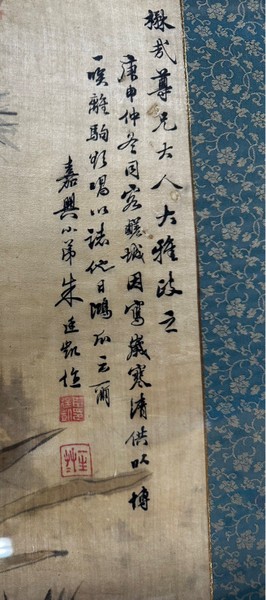 楙哉尊兄大人大雅政之
庚申仲冬同客疁城因寫歲寒清供以博
一唉離駒欲唱以誌他日鴻爪云爾
嘉興小弟朱廷